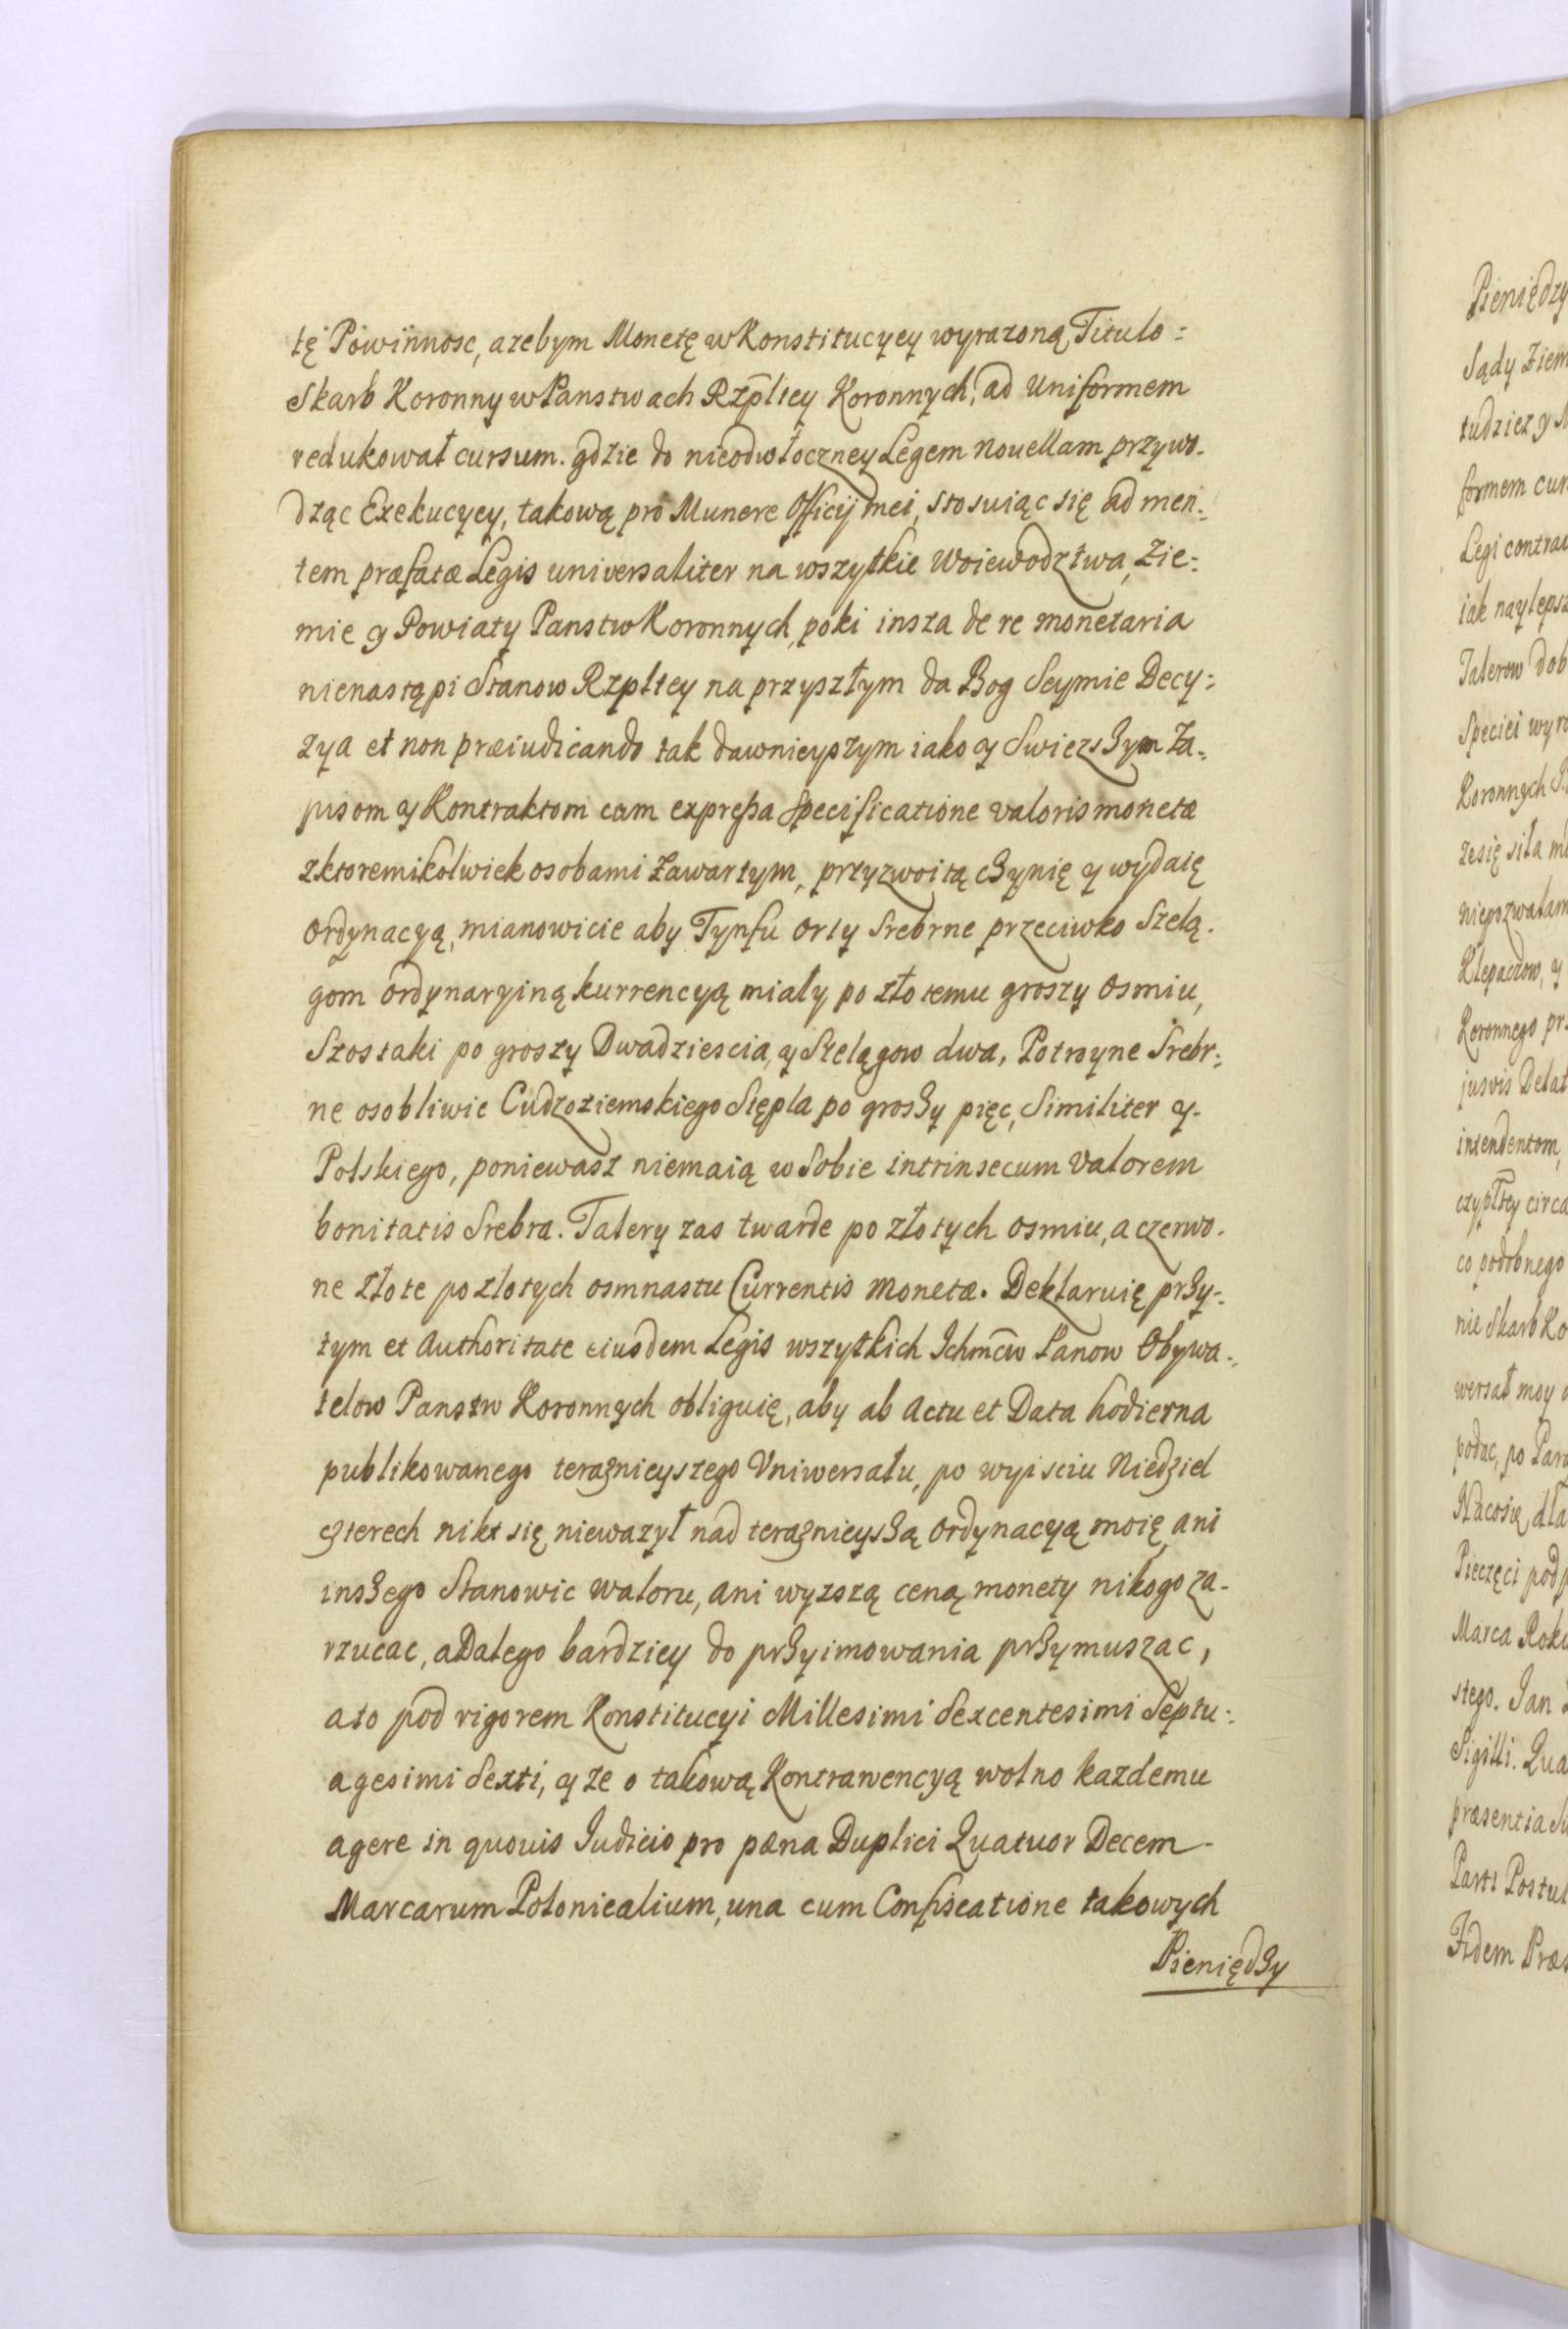 tę Powinnosc, azebym Monetę w Konstitucyey wyrazoną Titulo =
Skarb Koronny w Panstwach Rzpltey Koronnych, ad Uniformem
redukował cursum. gdzie do nieodwłoczney Legem Nouellam przywo-
dząc Exekucyey, takową pro Munere Officij mei, stosuiąc się ad men:
tem præfatæ Legis universaliter na wszytkie Woiewodztwa, Zie:
mie y Powiaty Panstw Koronnych, poki insza de re monetaria
nienastąpi Stanow Rzpltey na przyszłym da Bog Seymie Decy:
zya et non præiudicando tak dawnieyszym iako y Swiezszym Za:
pisom y Kontraktom cum expressa Specificatione valoris monetæ
zktoremikolwiek osobami zawartym, przyzwoitą czynię y wydaię
Ordynacyą, mianowicie aby Tynfu Orty Srebrne przeciwko Szelą-
gom Ordynaryiną kurrencyą miały po złotemu groszy Osmiu,
Szostaki po groszy Dwadziescia, y Szelągow dwa, Potroyne Srebr:
ne osobliwie Cudzoziemskiego Stępla po groszy pięc, Similiter y-
Polskiego, poniewasz niemaią w Sobie intrinsecum Valorem
bonitatis Srebra. Talery zas twarde po złotych osmiu, a czerwo-
ne złote po złotych osmnastu Currentis Monetæ. Deklaruię przy:
tym et Authoritate eiusdem Legis wszytkich Ichmcw Panow Obywa:
telow Panstw Koronnych obliguię, aby ab Actu et Data hodierna
publikowanego teraznieyszego Vniwersału, po wyisciu Niedziel
czterech nikt się niewazył nad teraznieyszą Ordynacyą moię ani
inszego Stanowic waloru, ani wyzszą ceną monety nikogo za-
rzucac, a Dalego bardziey do przyimowania przymuszac,
ato pod rigorem Konstitucyi Millesimi Sexcentesimi Septu:
agesimi Sexti, y ze o takową Kontrawencyą wolno kazdemu
agere in quouis Iudicio pro pæna Duplici Quatuor Decem-
Marcarum Polonicalium, una cum Confiscatione takowych
Pieniędzy